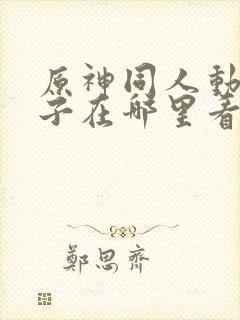 原神同人動
子在哪里看
鄭思齊